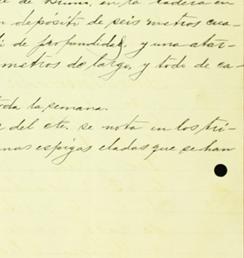 en la ladera en
n depósito de seis metros cua-
di de profundidad, y una atar-
metros de largo, y todo de ca-
oda la semana.
del cte. se nota en los tri-
nas espigas eladas que se han